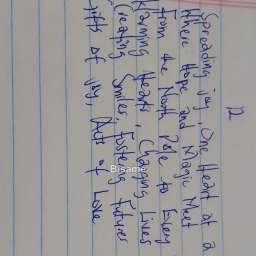 12
Spreading joy, One Heart at a
Where Hope and Magic Meet
From the North Pole to Every
Warming Hearts, Changing Lives
Creating Smiles, Fostering Futures
Gifts of Joy, Acts of Love
Bisame